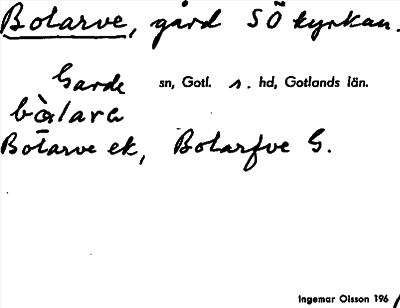 Botarve, gård SÖ kyrkan.
Garde sn, Gotl. s. hd, Gotlands län.
Botarve ek, Botarfve G.
Ingemar Olsson 196